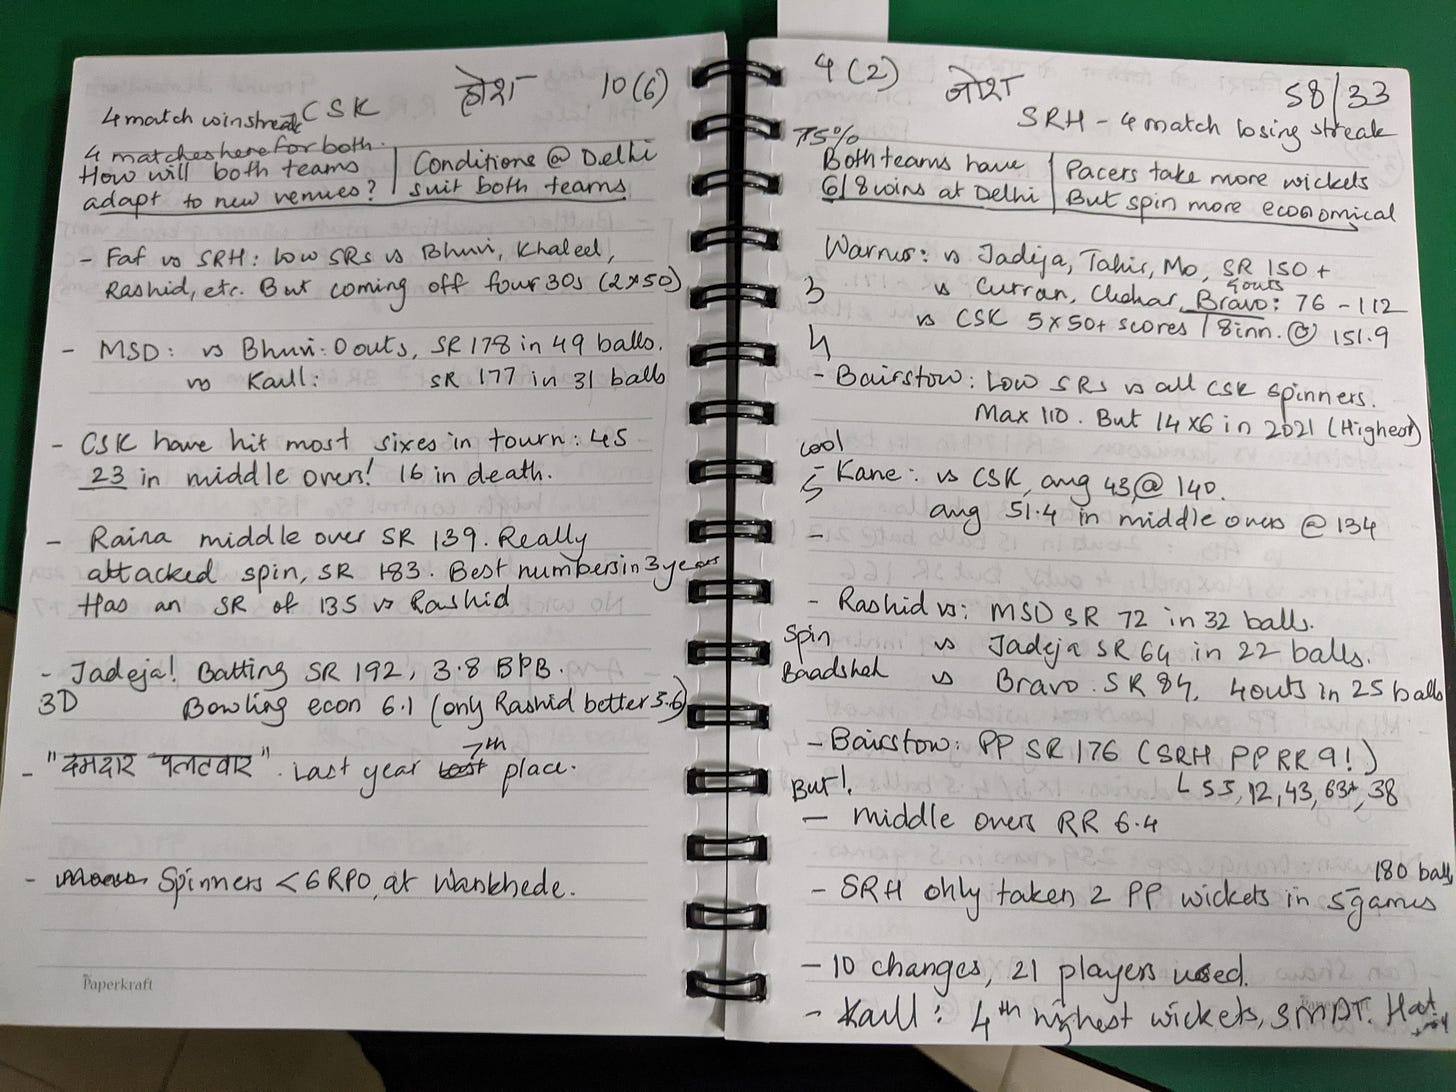 होश 10(6)
4 match winstreak CSK
4 matches here for both.
How will both teams | Conditions @ Delhi
adapt to new venues? | suit both teams
- Faf vs SRH: low SRs vs Bhuvi, Khaleel,
Rashid, etc. But coming off four 30s (2x50)
- MSD: vs Bhuvi: 0 outs, SR 178 in 49 balls.
vs Kaul: SR 177 in 31 balls
- CSK have hit most sixes in tourn: 45
23 in middle overs! 16 in death.
- Raina middle over SR 139. Really
attacked spin, SR 183. Best numbers in 3 years
Has an SR of 135 vs Rashid
- Jadeja! Batting SR 192, 3.8 BPB.
3D Bowling econ 6.1 (only Rashid better 5.6)
7th
- "दमदार पलटवार". Last year last place.
- Spinners <6 RPO, at Wankhede.
Paperkraft
4 (2) जोश 58/33
SRH - 4 match losing streak
75%
Both teams have | Pacers take more wickets
6/8 wins at Delhi | But spin more economical
Warner: vs Jadeja, Tahir, Mo, SR 150+
4outs
3 vs Curran, Chahar, Bravo: 76 - 112
vs CSK 5x50+ scores / 8inn. @ 151.9
4
- Bairstow: Low SRs vs all CSK spinners.
Max 110. But 14x6 in 2021 (Highest)
cool
- Kane: vs CSK, avg 43 @ 140.
5
avg 51.4 in middle overs @ 134
-
- Rashid vs: MSD SR 72 in 32 balls.
Spin vs Jadeja SR 64 in 22 balls.
Baadshah vs Bravo. SR 84, 4outs in 25 balls
- Bairstow: PP SR 176 (SRH PP RR 9!)
But! 55, 12, 43, 63*, 38
- middle overs RR 6.4
180 balls
- SRH only taken 2 PP wickets in 5 games
- 10 changes, 21 players used.
- Kaul: 4th highest wickets, SMAT.